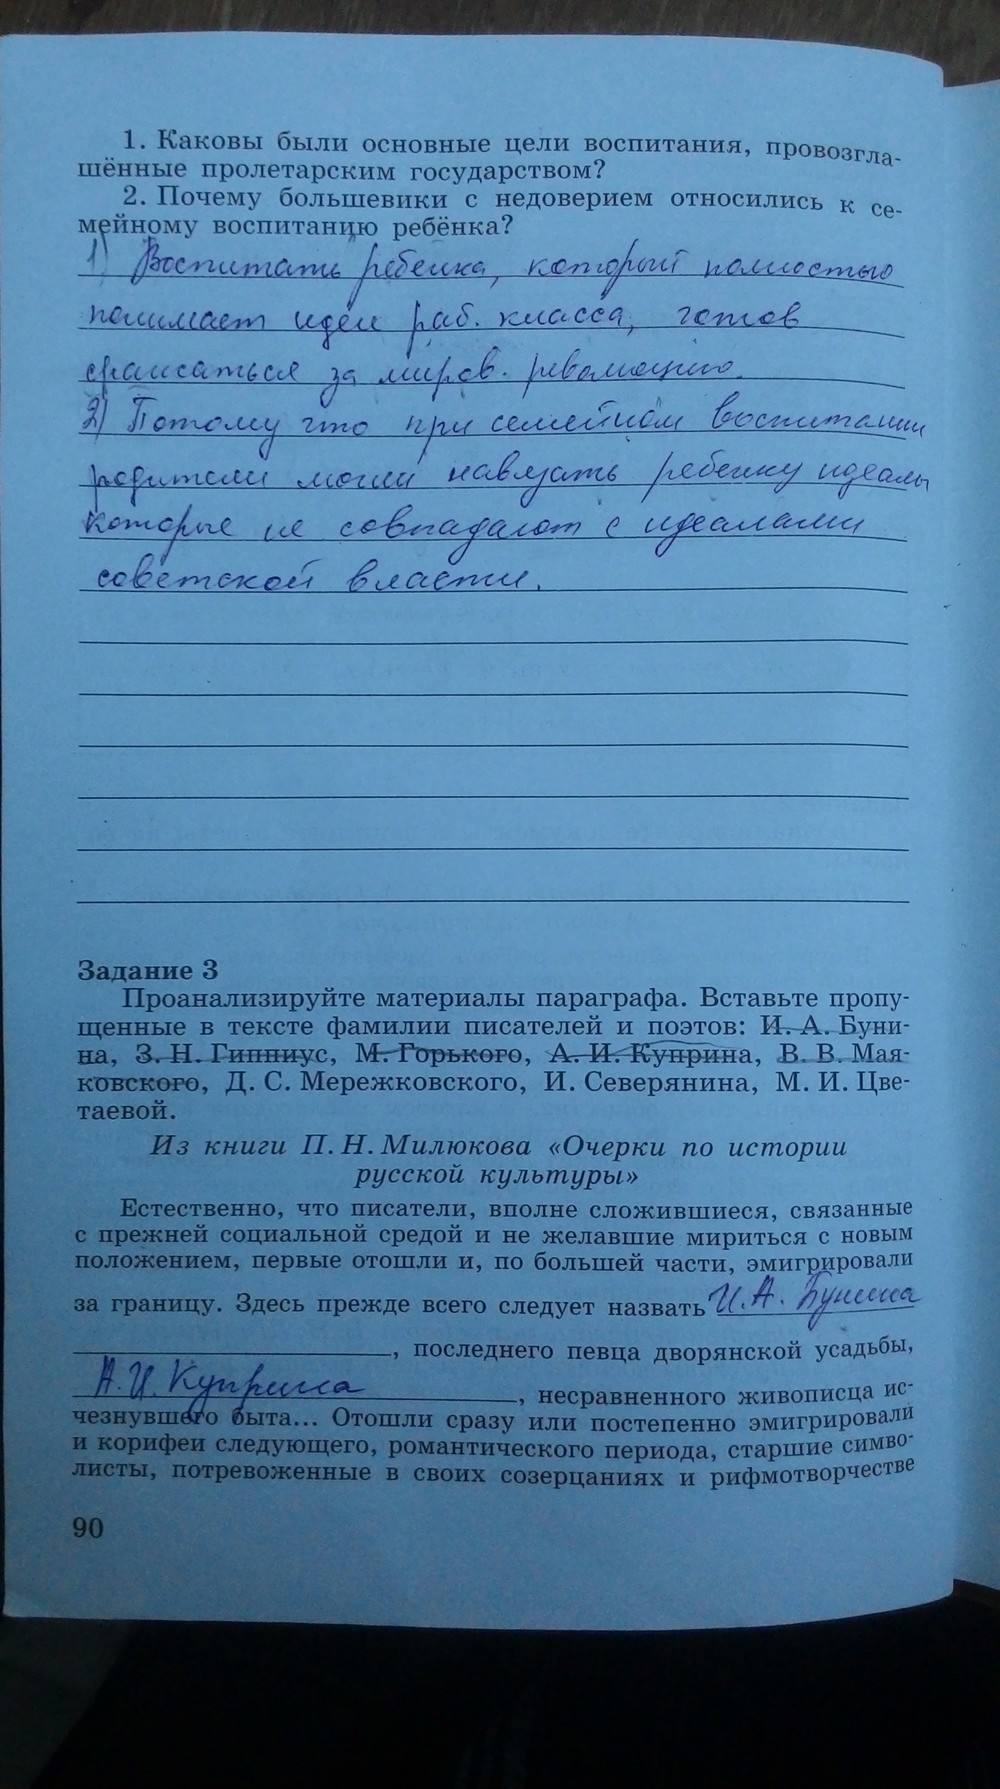 1. Каковы были основные цели воспитания, провозгла-
шённые пролетарским государством?
2. Почему большевики с недоверием относились к се-
мейному воспитанию ребёнка?
1) Воспитать ребенка, который полностью
понимает идеи раб. класса, готов
сражаться за миров. революцию.
2) Потому что при семейном воспитании
родители могли навязать ребенку идеалы
которые не совпадают с идеалами
советской власти.
Задание 3
Проанализируйте материалы параграфа. Вставьте пропу-
щенные в тексте фамилии писателей и поэтов: И. А. Буни-
на, З. Н. Гиппиус, М. Горького, А. И. Куприна, В. В. Мая-
ковского, Д. С. Мережковского, И. Северянина, М. И. Цве-
таевой.
Из книги П. Н. Милюкова «Очерки по истории
русской культуры»
Естественно, что писатели, вполне сложившиеся, связанные
с прежней социальной средой и не желавшие мириться с новым
положением, первые отошли и, по большей части, эмигрировали
за границу. Здесь прежде всего следует назвать И. А. Бунина
, последнего певца дворянской усадьбы,
А. И. Куприна, несравненного живописца ис-
чезнувшего быта... Отошли сразу или постепенно эмигрировали
и корифеи следующего, романтического периода, старшие симво-
листы, потревоженные в своих созерцаниях и рифмотворчестве
90